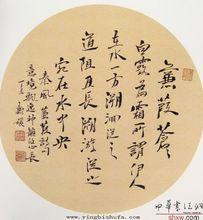 蒹葭蒼
白露為霜所謂伊人
在水一方溯洄從之
道阻且長溯游從之
宛在水中央
秦風蒹葭詩
www.yingbishufa.com
shxw.com